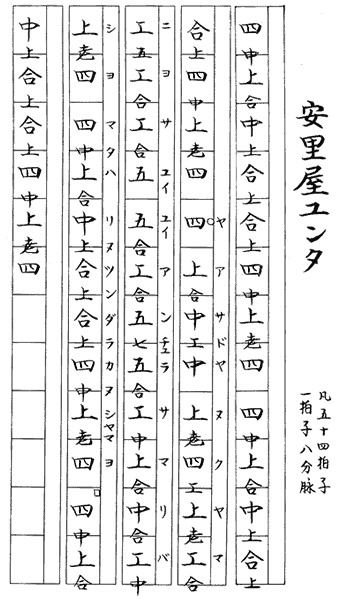 安里屋ユンタ
凡五十四拍子
一拍子八分脉
四中上合中上合上合上四中上老四 四中上合中上合上
合上四中上老四 四上合中工中 上老四工上老工合
ヤアサドヤヌクヤマ
工五工合工合五 五工合五七五合工中上合中合工中
ニヨサユイユイアンチュラサマリバ
上老四 四中上合中上合上合上四中上老四 四中上合
シヨマタハリヌツンダラカヌシャマヨ
中上合上合上四中上老四